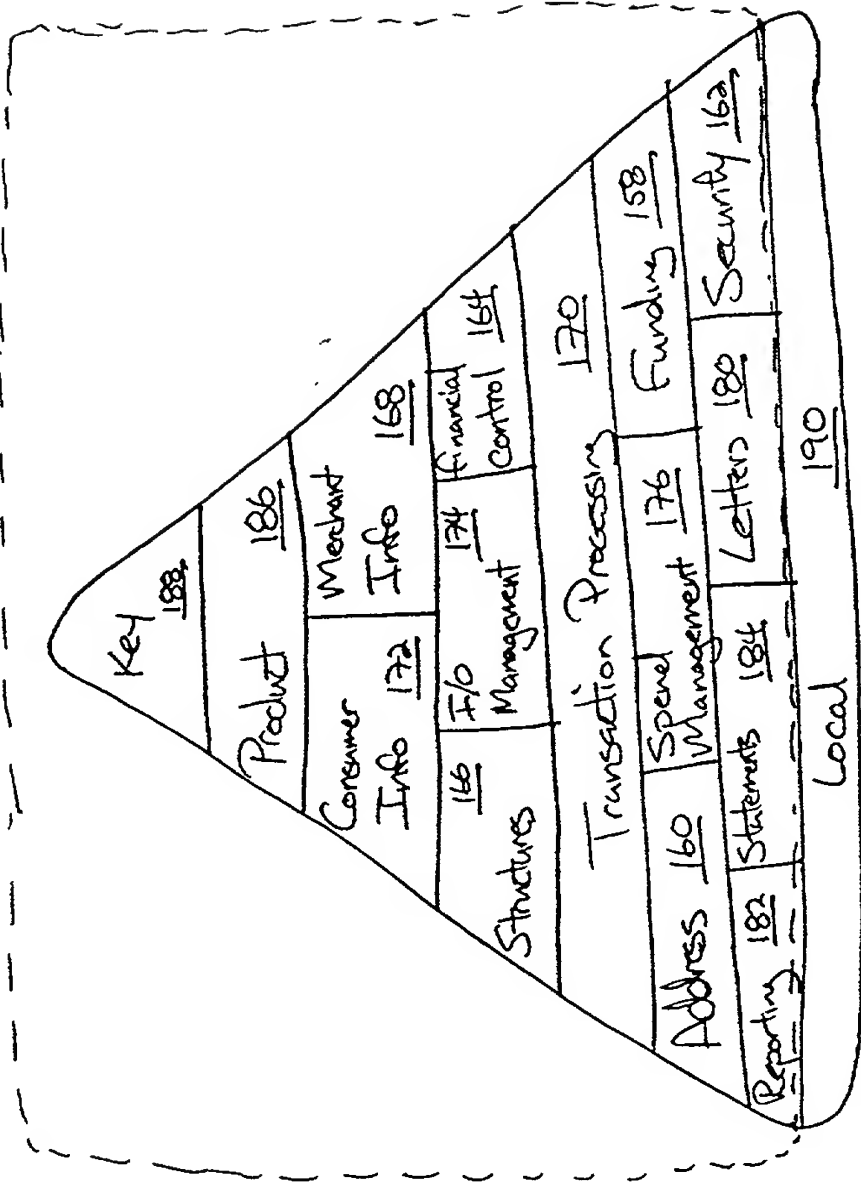 Key
188
Product 186
Consumer
Info 172
Merchant
Info 168
Structures 166
I/O 174
Management
financial
control 164
Transaction Processing 170
Address 160
Spend
Management 176
Funding 158
Reporting 182
Statements 184
Letters 180
Security 162
Local 190